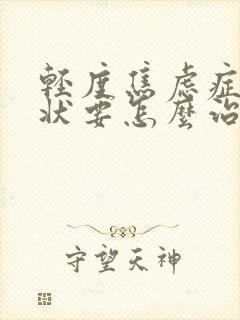 輕度焦慮症
狀要怎麼治
守望天神